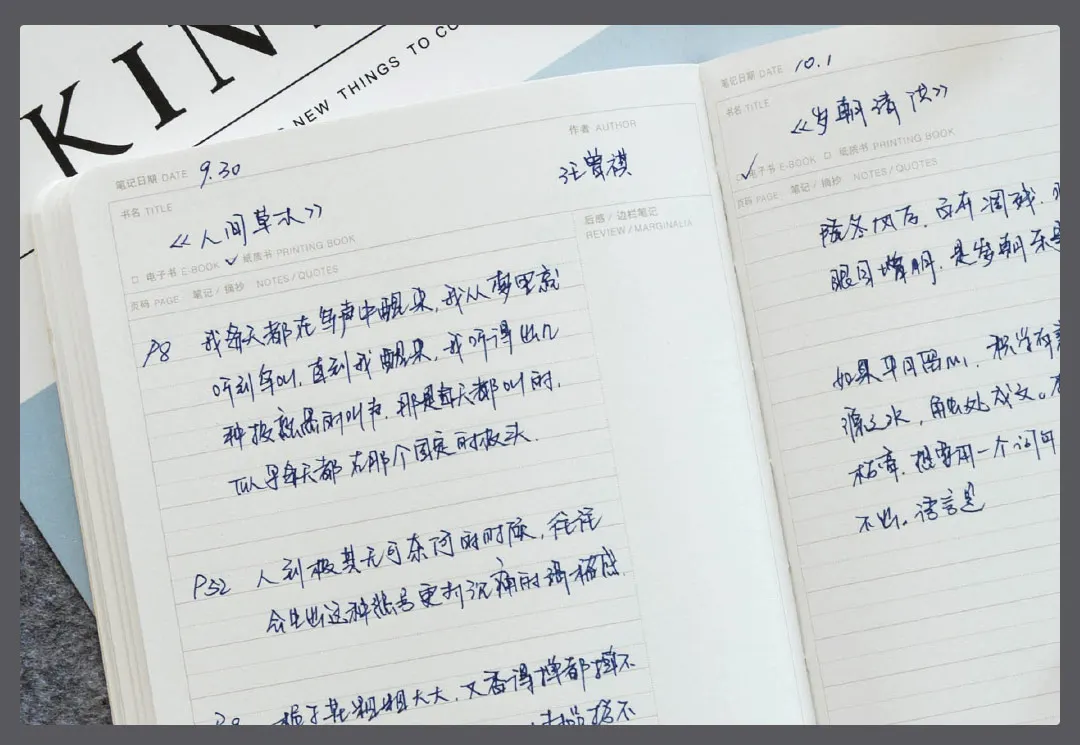 KIN
NEW THINGS TO CO
笔记日期 DATE 9.30
作者 AUTHOR
书名 TITLE
汪曾祺
《人间草木》
□ 电子书 E-BOOK ✓ 纸质书 PRINTING BOOK
后感 / 边栏笔记
REVIEW / MARGINALIA
页码 PAGE 笔记 / 摘抄 NOTES / QUOTES
P8 我每天都在鸟声中醒来，我从梦里就
听到鸟叫，直到我醒来，我听得出几
种极熟悉的叫声，那是每天都叫的，
似乎每天都在那个固定的枝头．
P52 人到极其无可奈何的时候，往往
会生出这种比悲号更为沉痛的滑稽感．
栀子花粗粗大大，又香得掸都掸不
笔记日期 DATE 10.1
书名 TITLE
《岁朝清供》
✓ 电子书 E-BOOK □ 纸质书 PRINTING BOOK
页码 PAGE 笔记 / 摘抄 NOTES / QUOTES
隆冬风厉，百卉凋残，
眼目增明，是岁朝乐
如果平日留心，积学有
源之水，触处成文。
枯窘，想要用一个词
不出。语言是